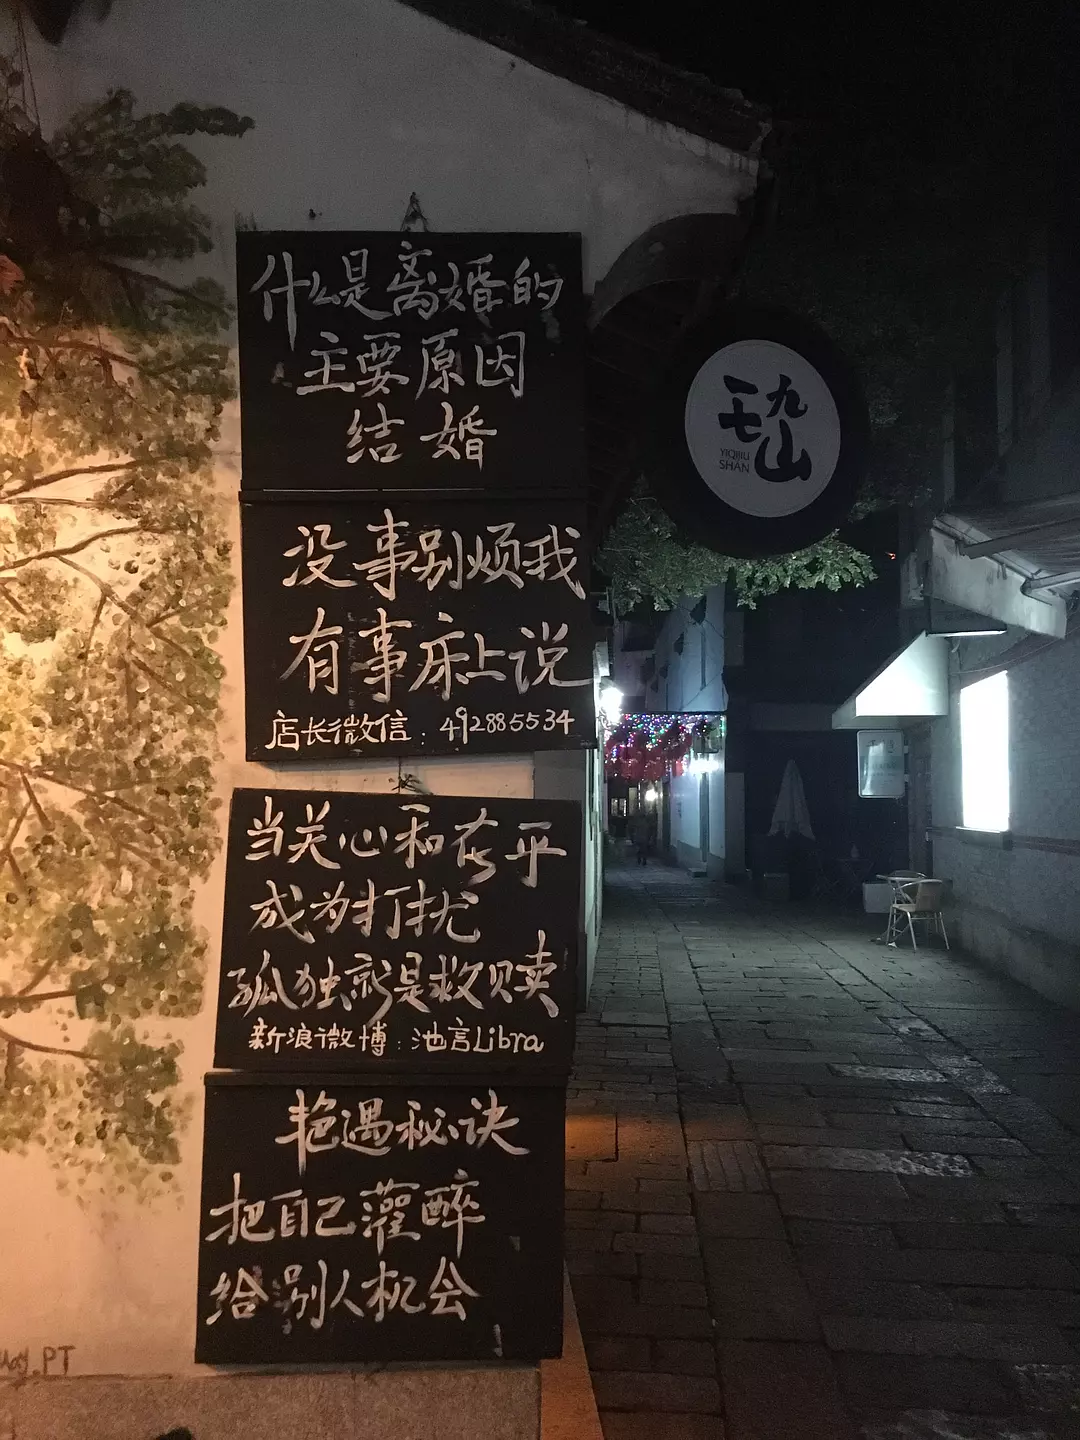 什么是离婚的
主要原因
结婚
没事别烦我
有事床上说
店长微信：492885534
当关心和在乎
成为打扰
孤独就是救赎
新浪微博：池言Libra
艳遇秘诀
把自己灌醉
给别人机会
一七九山
YIQIJIU
SHAN
PT